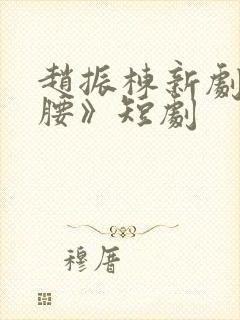 趙振棟新劇
腰》短劇
穆厝